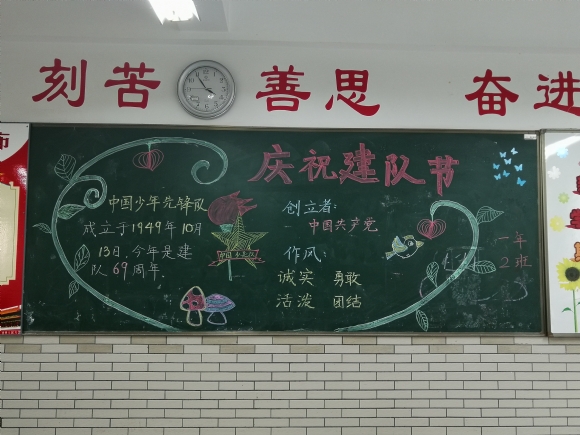 刻苦 善思 奋进
庆祝建队节
中国少年先锋队
成立于1949年10月
13日,今年是建
队69周年.
创立者:
中国共产党
作风:
诚实 勇敢
活泼 团结
一年
2班